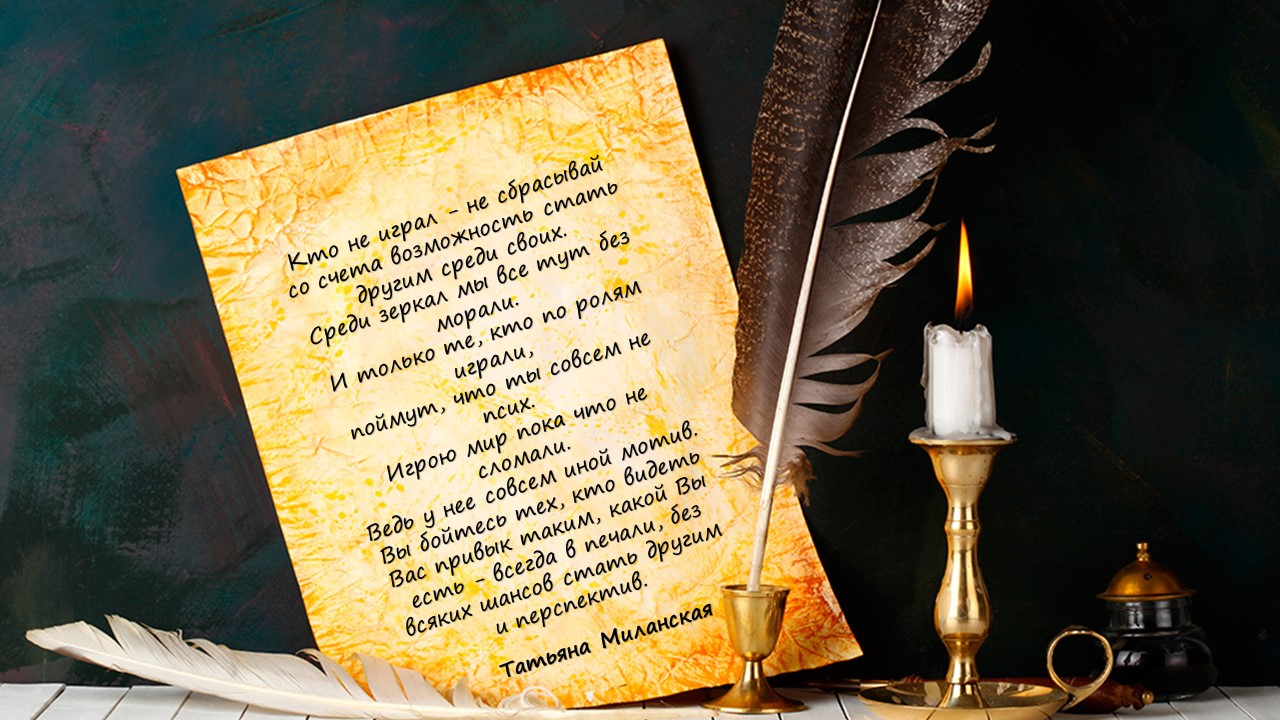 Кто не играл - не сбрасывай
со счета возможность стать
другим среди своих.
Среди зеркал мы все тут без
морали.
И только те, кто по ролям
играли,
поймут, что ты совсем не
псих.
Игрою мир пока что не
сломали.
Ведь у нее совсем иной мотив.
Вы бойтесь тех, кто видеть
Вас привык таким, какой Вы
есть - всегда в печали, без
всяких шансов стать другим
и перспектив.
Татьяна Миланская